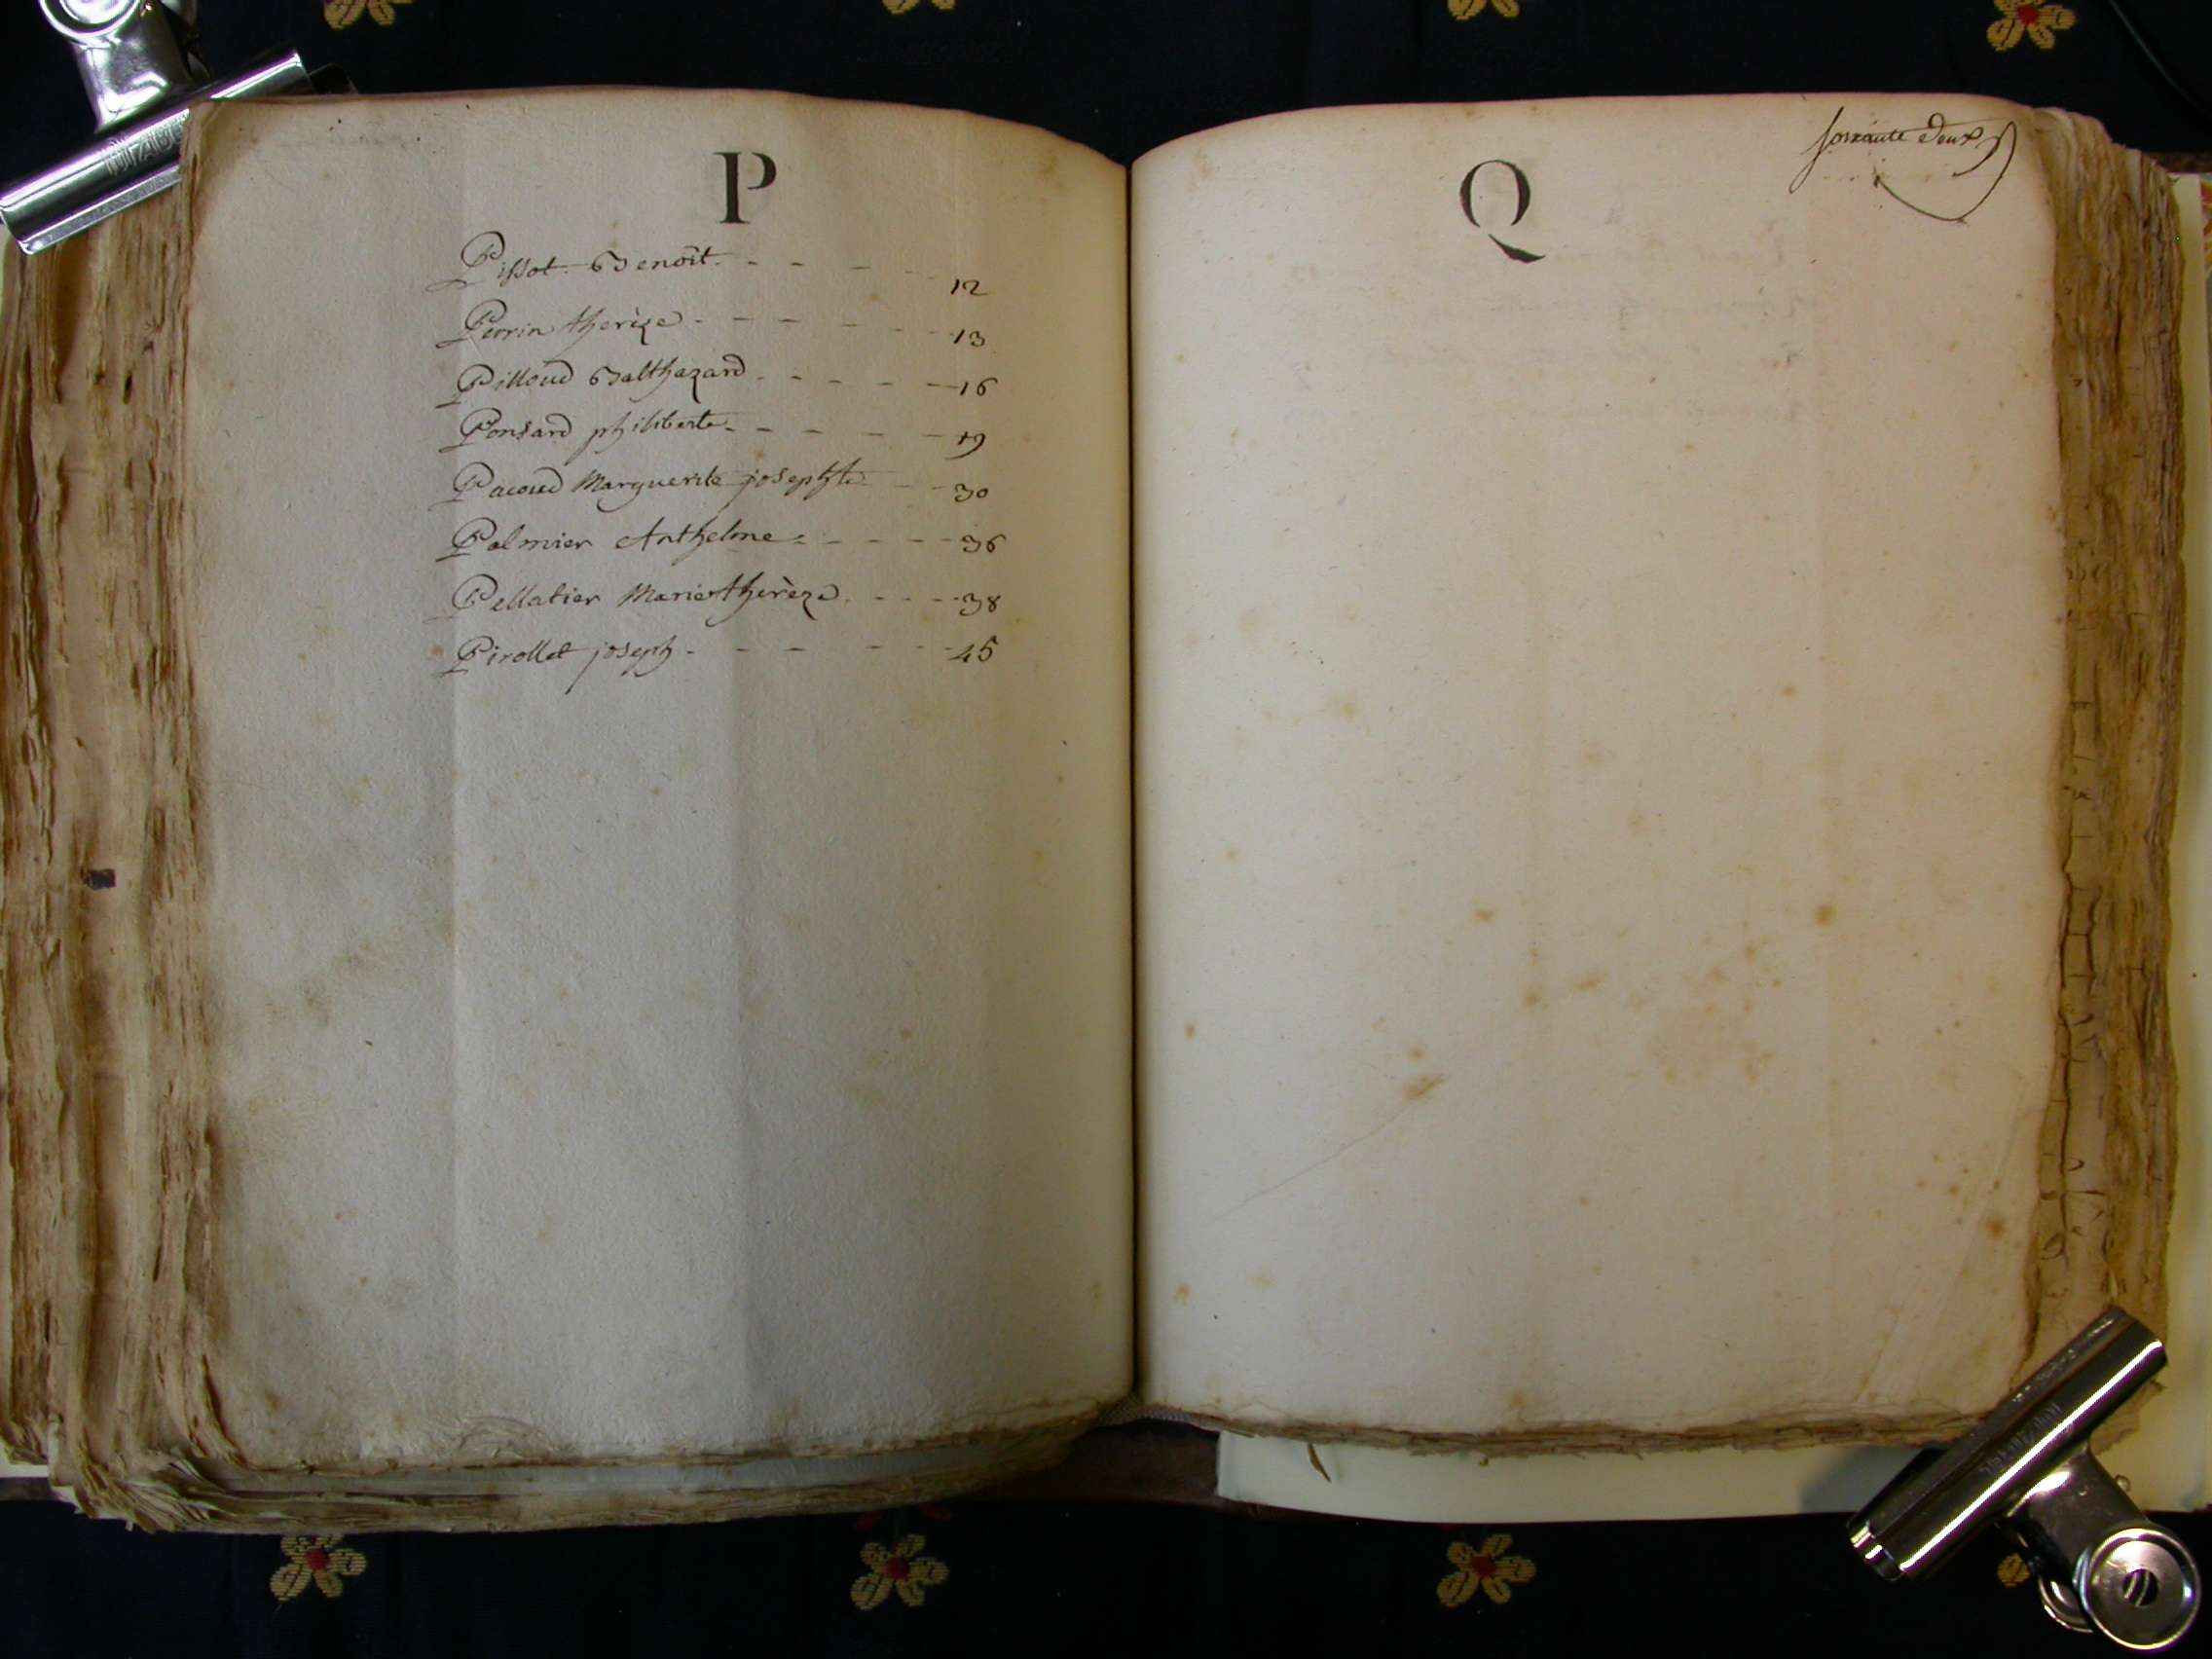 P
Pissot Benoît. - - - - 12
Perrin thereze - - - - - 13
Pilloud Balthazard - - - - - 16
Ponsard philiberte - - - - - 19
Pacoud Marguerite josephte - - 30
Palmier Anthelme - - - - - 36
Pellatier Marie therèze - - - - 38
Pirollet joseph - - - - - 45
Q
soixante deux